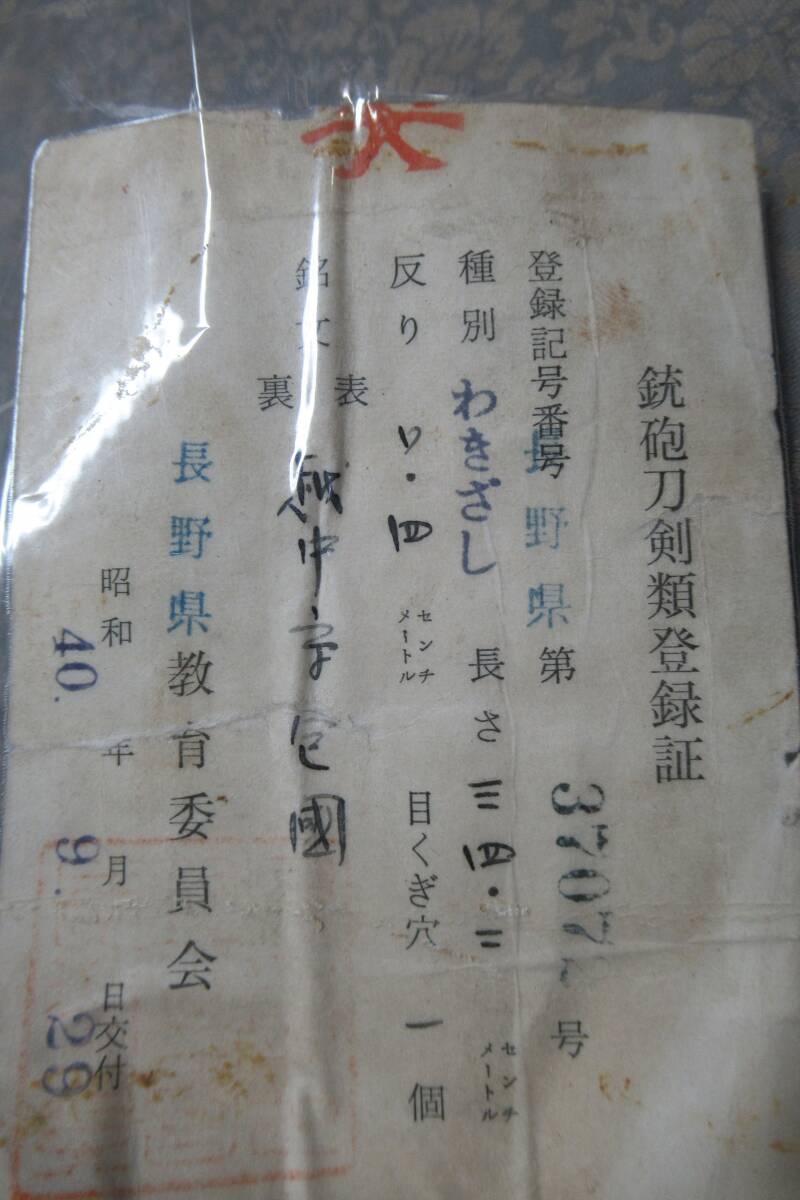 銃砲刀剣類登録証
登録記号番号 長野県 第 3707 号
種別 わきざし 長さ 三四・二 センチメートル
反り 〇・四 センチメートル 目くぎ穴 一個
銘文 表 越中守包國
裏
長野県教育委員会
昭和 40. 年 9. 月 29 日交付